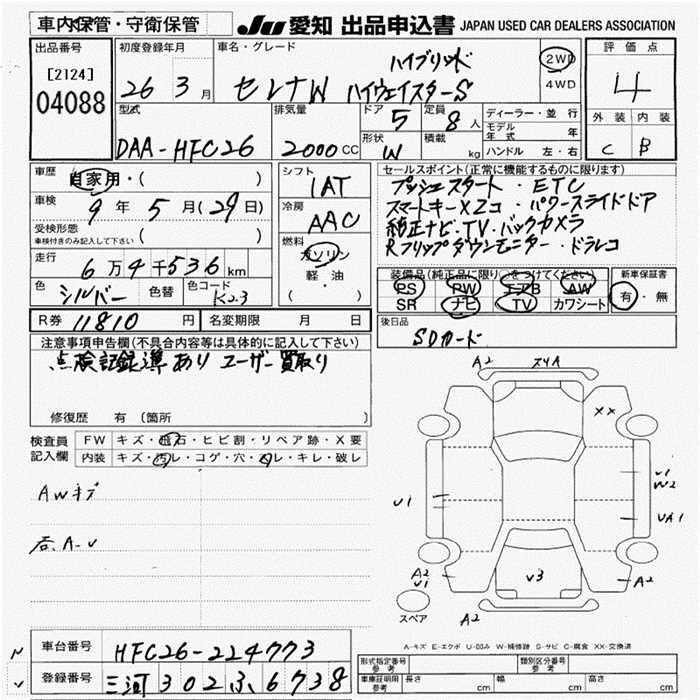 車内保管・守衛保管 JU 愛知 出品申込書 JAPAN USED CAR DEALERS ASSOCIATION
出品番号 [2124] 04088
初度登録年月 26 3月
車名・グレード ハイブリッド セレナW ハイウェイスターS
2WD 4WD
評価点 4
外装 C 内装 B
型式 DAA-HFC26
排気量 2000CC
ドア 5 定員 8人
形状 W 積載 kg
ディーラー・並行
モデル年式 年
ハンドル 左・右
車歴 自家用・( )
車検 9年5月(29日)
受検形態 車検付きのみ記入して下さい ( )
走行 6万4千536km
色 シルバー 色替 色コード K23
シフト 1AT
冷房 AAC
燃料 ガソリン 軽油 ( ・ )
セールスポイント(正常に機能するものに限ります)
プッシュスタート・ETC
スマートキーX2コ・パワースライドドア
純正ナビ・TV・バックカメラ
Rフリップダウンモニター・ドラレコ
装備品(純正品に限り○をつけてください)
PS PW エアB AW
SR ナビ TV カワシート
新車保証書 有・無
R券 11810円 名変期限 月 日
後日品 SDカード
注意事項申告欄(不具合内容等は具体的に記入して下さい)
点検記録簿あり ユーザー買取り
修復歴 有(箇所 )
検査員記入欄
FW キズ・飛石・ヒビ割・リペア跡・X要
内装 キズ・汚レ・コゲ・穴・スレ・キレ・破レ
AWキズ
A-U
A2
XX
U1
U1
W2
UA1
A2
U1
U3
A2
A2
スペア
A-キズ E-エクボ U-凹み W-補修跡 S-サビ C-腐食 XX-交換済
車台番号 HFC26-224773
登録番号 三河 302 ふ 6738
形式指定番号 参考 類別区分番号 参考
車庫証明用 参考 長さ cm 幅 cm 高さ cm